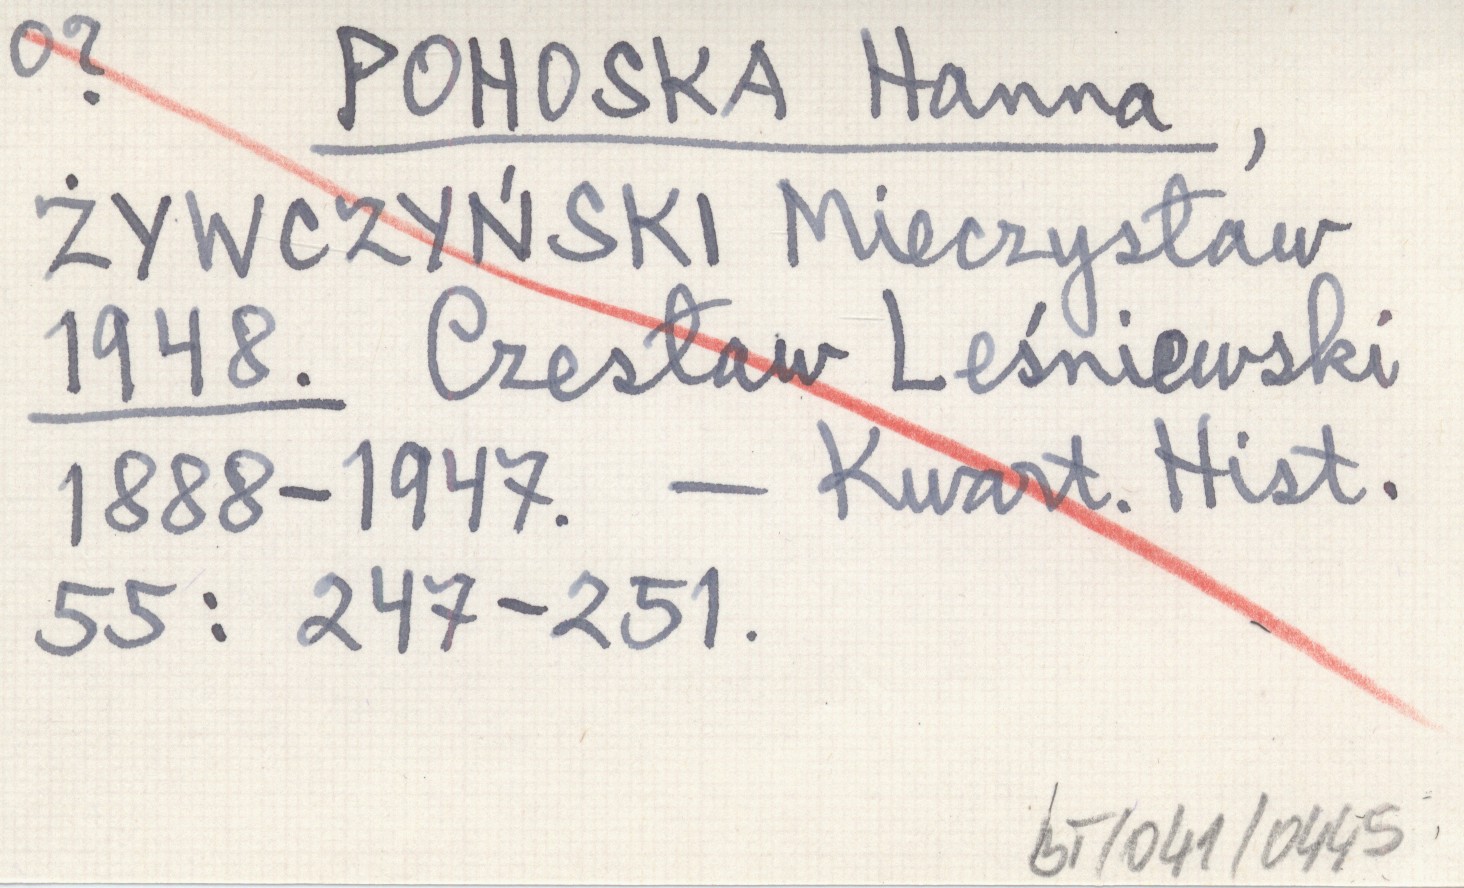 o?
POHOSKA Hanna,
ŻYWCZYŃSKI Mieczysław
1948. Czesław Leśniewski
1888-1947. — Kwart. Hist.
55: 247-251.
bT/041/0445